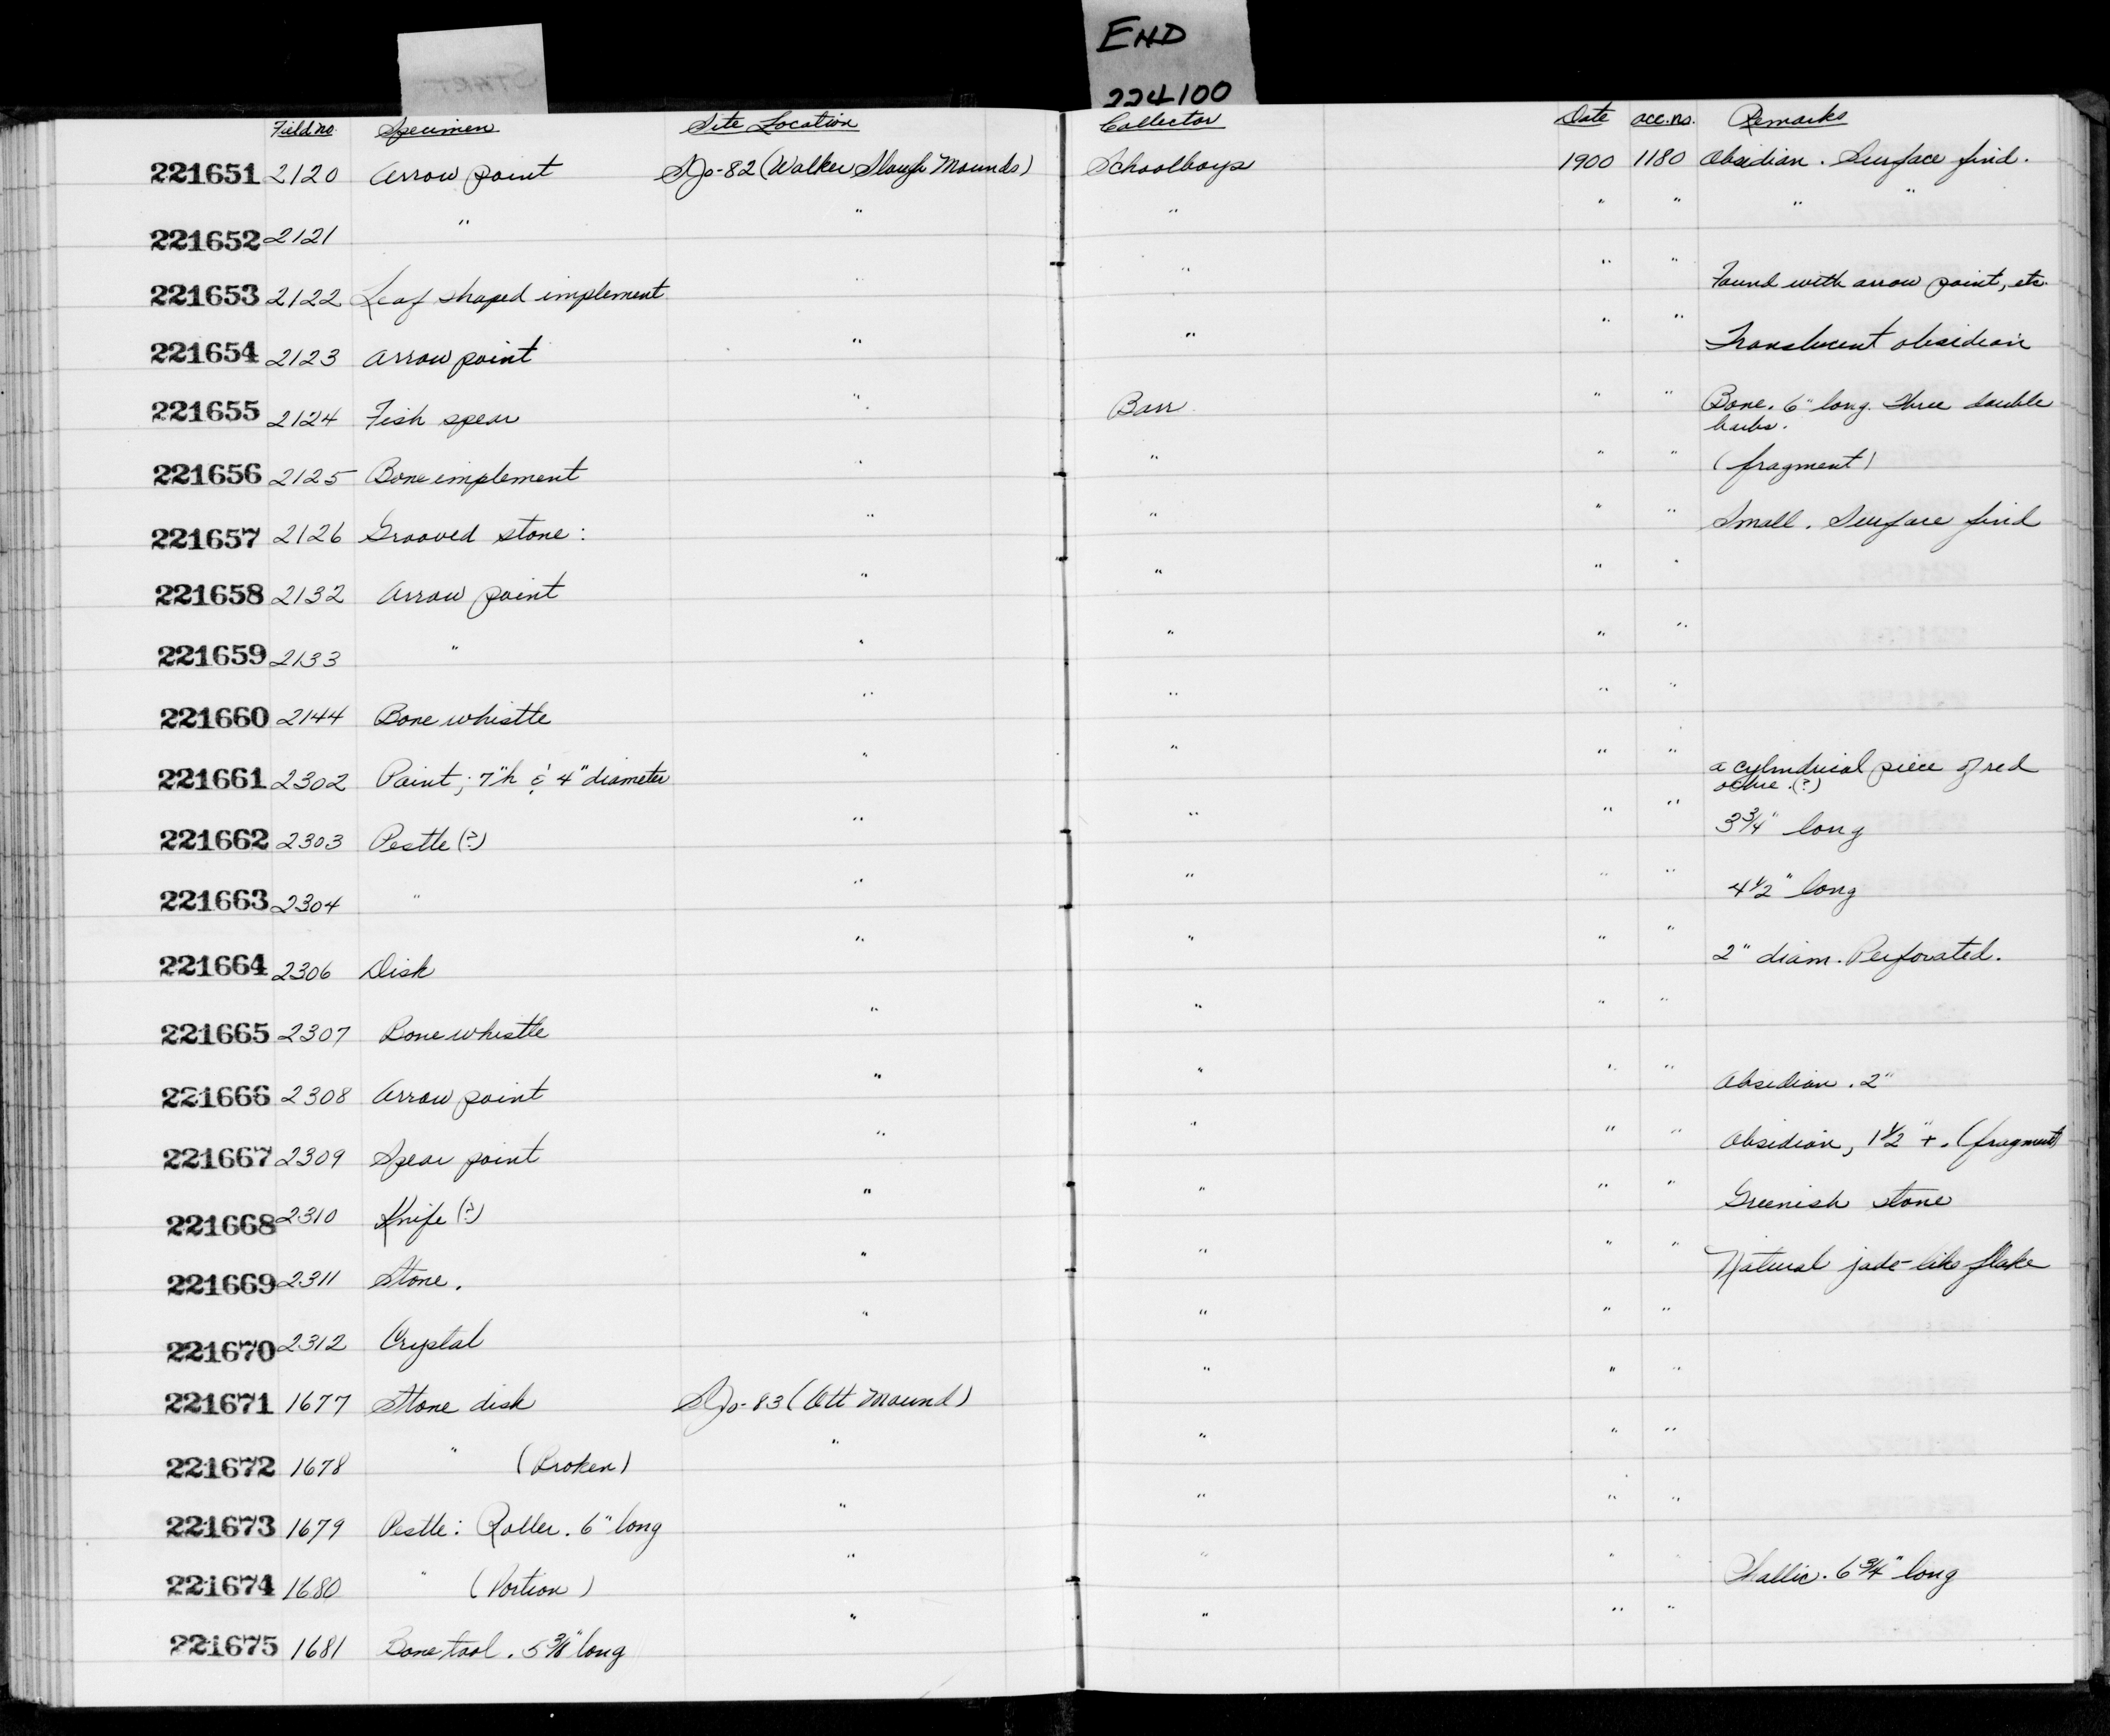 END
224100
Field no. Specimen Site Location Collector Date acc. no. Remarks
221651 2120 Arrow point SJo-82 (Walker Slough Mounds) Schoolboys 1900 1180 Obsidian. Surface find.
221652 2121 " " " " " " "
221653 2122 Leaf shaped implement " " " " Found with arrow point, etc.
221654 2123 Arrow point " " " " Translucent obsidian
221655 2124 Fish spear " Barr " " Bone. 6" long. Three double
barbs.
221656 2125 Bone implement " " " " (fragment)
221657 2126 Grooved stone: " " " " Small. Surface find
221658 2132 Arrow point " " " "
221659 2133 " " " " "
221660 2144 Bone whistle " " " "
221661 2302 Paint; 7"h & 4" diameter " " " " a cylindrical piece of red
ochre. (?)
221662 2303 Pestle (?) " " " " 3 3/4" long
221663 2304 " " " " " 4 1/2" long
221664 2306 Disk " " " " 2" diam. Perforated.
221665 2307 Bone whistle " " " "
221666 2308 Arrow point " " " " Obsidian. 2"
221667 2309 Spear point " " " " Obsidian, 1 1/2" +. (fragment)
221668 2310 Knife (?) " " " " Greenish stone
221669 2311 Stone. " " " " Natural jade-like flake
221670 2312 Crystal " " " "
221671 1677 Stone disk SJo-83 (Ott Mound) " " "
221672 1678 " (Broken) " " " "
221673 1679 Pestle: Roller. 6" long " " " "
221674 1680 " (Portion) " " " " Phallic. 6 3/4" long
221675 1681 Bone tool. 5 3/8" long " " " "